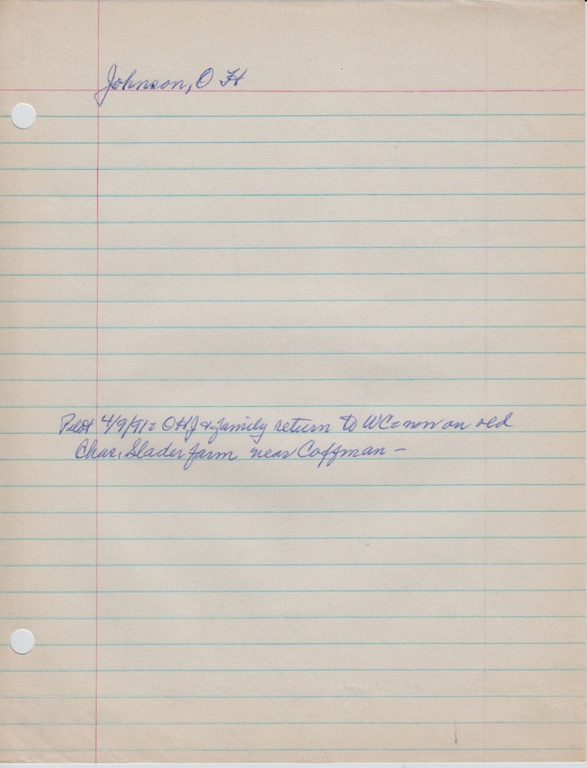 Johnson, O H
Pilot 4/9/91= OHJ & family return to WC = now on old
Chas. Slader farm near Coffman –